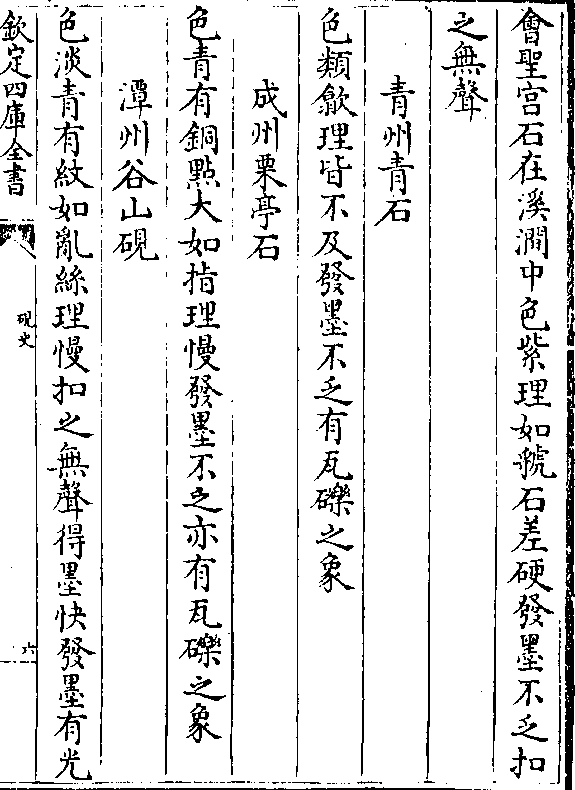 會聖宫石在溪澗中色紫理如虢石差硬發墨不乏扣
之無聲
青州青石
色類歙理皆不及發墨不乏有瓦礫之象
成州栗亭石
色青有銅點大如指理慢發墨不乏亦有瓦礫之象
潭州谷山硯
色淡青有紋如亂絲理慢扣之無聲得墨快發墨有光
欽定四庫全書
硯史
六